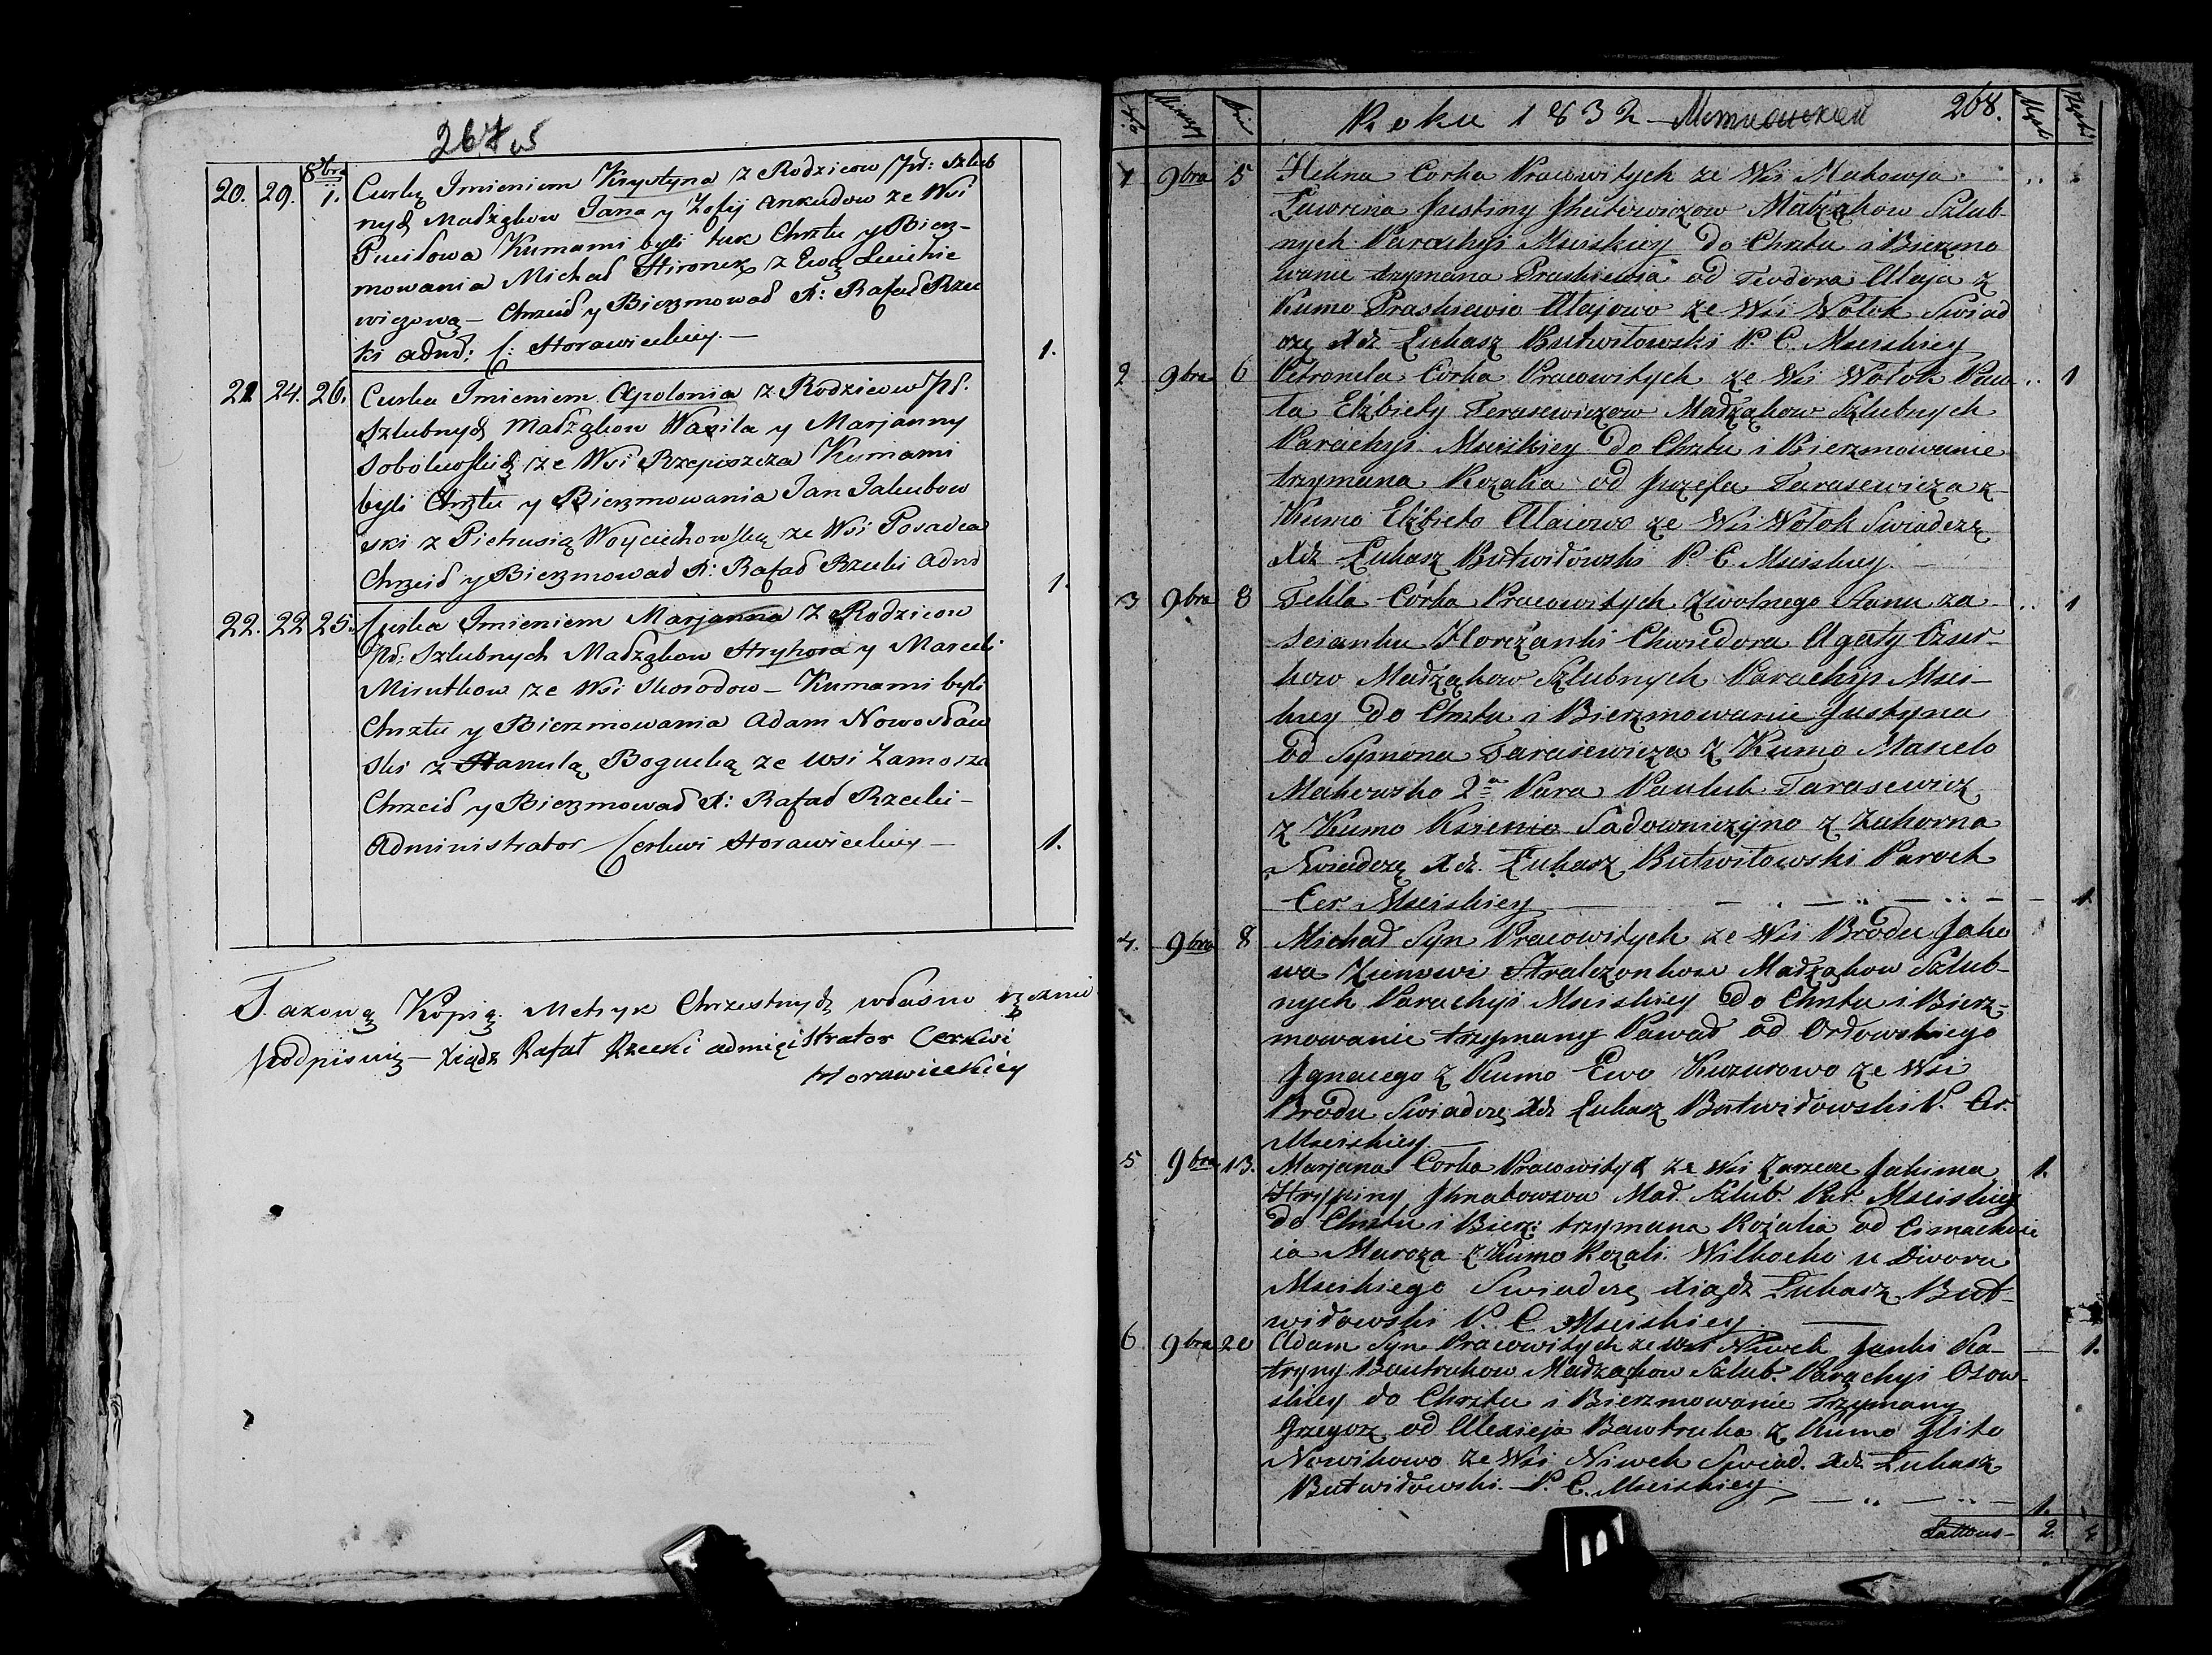 267 v
20. 29. 8bra 1. Curkę Imieniem Krystyna z Rodzicow Pd: Szlub
nyh Madząkow Jana y Zofij Ankudow ze Wsi
Kumami byli tak Chrztu y Bierz-
mowania Michad Hironek z Ewą
wiczową — Chrzcid y Bierzmowad X: Rafad Rzec
ki adm: C: Horawieckiey. — 1.
21 24. 26. Curka Imieniem Apolonia z Rodzicow Pd.
Szlubnyh Madząkow Wasila y Marjanny
Sobolewskih ze Wsi Rzepiszcza Kumami
byli Chrztu y Bierzmowania Jan Jakubow
ski z Pietrusią Woyciechowską ze Wsi Posadca
Chrzcid y Bierzmowad X: Rafad Rzecki Adm 1.
22. 22 25. Curka Imieniem Marjanna z Rodzicow
Pd: Szlubnych Madząkow Hryhora y Marceli
Misutkow ze Wsi — Kumami byli
Chrztu y Bierzmowania Adam Nowosław
ski z Bogucką ze wsi Zamosza
Chrzcid y Bierzmowad X: Rafad Rzecki —
Administrator Cerkwi Horawieckiey — 1.
Takową Kopią Metryk Chrzestnyh własno ręcznie
podpisuię — Xiądz Rafał Rzecki administrator Cerkwi
Horawieckiey
Roku 1832 268.
1 9bra 5 Helina Corka Pracowitych ze Wsi Makowja
Ławrena Justiny Madząkow Szlub-
nych Parachyi Msciskiey do Chrztu i Bierzmo
wanie trzymana Praskiewia od Teodora Alaja z
Kumo Praskiewio Alajowo ze Wsi Wołok Swiad
czę Xdz Łukasz Butwiłowski P. C. Msciskiey
2 9bra 6 Petronela Corka Pracowitych ze Wsi Wołok Paw .. 1
ła Elżbiety Terasewiczow Madząkow Szlubnych
Parachyi Msciskiey do Chrztu i Bierzmowanie
trzymana Rozalia od Juzefa Tarasewicza z
Kumo Elżbieto Alaiowo ze Wsi Wołok Swiadczę
Xdz Łukasz Butwidowski P. C. Msciskiey. —
3 9bra 8 Tekla Corka Pracowitych zwolnego Stanu za .. 1
scianku Horczanki Chwiedora Agaty
kow Madząkow Szlubnych Parachyi Msci-
kiey do Chrztu i Bierzmowanie Justyna
od Symona Tarasewicza z Kumo Masielo
Makowsko 2a Para Pauluk Tarasewicz
z Kumo Ksienio Sadowniczyno z Zahorna
Swiadczę Xdz. Łukasz Butwiłowski Paroch
Cer. Msciskiey — 1
4. 9bra 8 Michad Syn Pracowitych ze Wsi Brodu Jako
wa Zienowi Stralczonkow Madząkow Szlub-
nych Parachyi Msciskiey do Chrztu i Bierz-
mowanie trzymany Pawad od Ordowskiego
Jgnacego z Kumo Ewo Kuzurowo ze Wsi
Brodu Swiadczę Xdz Łukasz Butwidowski P. Cer.
Msciskiey.
5 9bra 13. Marjana Corka Pracowityh ze Wsi Zarzecze Jakima 1.
Hrypiny Jhnatowzow Mad. Szlub. Par. Msciskiey
do Chrztu i Bierz: trzymana Rozalia od Cimachwie
ia Maroza z Kumo Rozali Wilkocko u Dworu
Mscikiego Swiadczę Xiądz Łukasz But-
widowski P. C. Msciskiey. —
6 9bra 20 Adam Syn Pracowitych ze Wsi Niwek Janki Ka- — 1.
tryny Bautrukow Madząkow Szlub. Parachyi Osow-
skiey do Chrztu i Bierzmowanie Trzymany
Grzegorz od Alexieja Bawtruka z Kumo Jlito
Nowikowo ze Wsi Niwek Swiad. Xdz Łukasz
Butwidowski. P. C. Msciskiey — 1.
Lattus — 2. 4